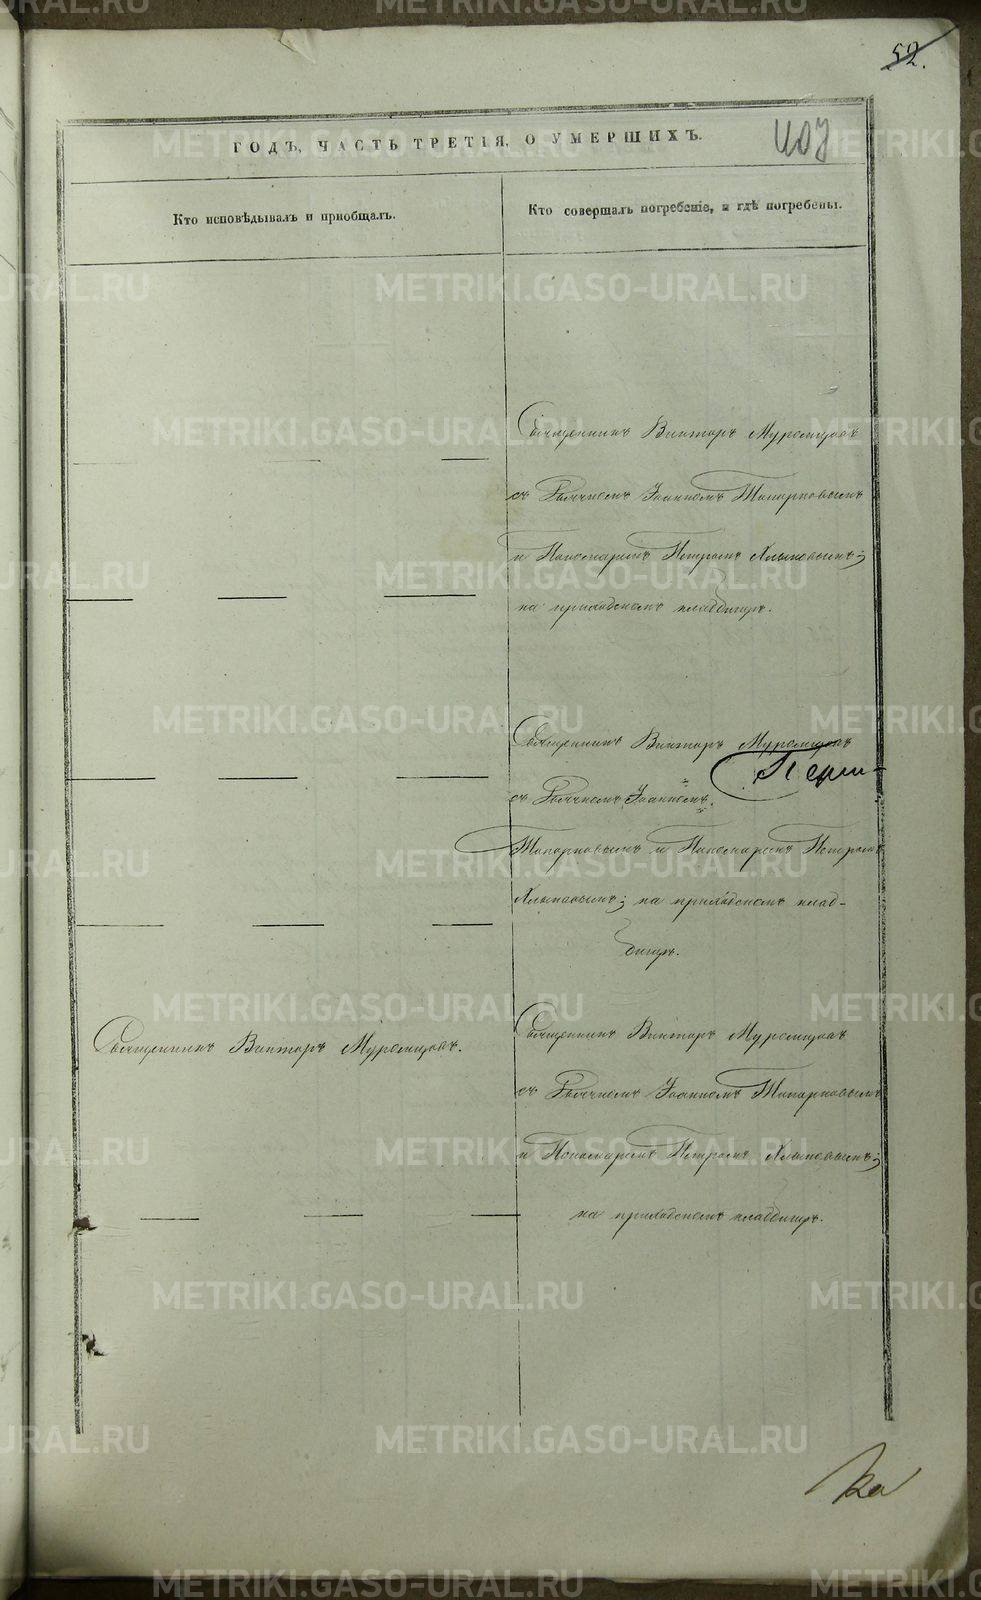 52.
ГОДЪ, ЧАСТЬ ТРЕТІЯ, О УМЕРШИХЪ.
407
Кто исповѣдывалъ и пріобщалъ.
Кто совершалъ погребеніе, и гдѣ погребены.
Священникъ Викторъ Муромцовъ
съ Дьячкомъ Іоанномъ Топорковымъ
и Пономаремъ Петромъ Хлыновымъ;
на приходскомъ кладбищѣ.
Священникъ Викторъ Муромцовъ
съ Дьячкомъ Іоанномъ
Топорковымъ и Пономаремъ Петромъ
Хлыновымъ; на приходскомъ клад-
бищѣ.
Священникъ Викторъ Муромцовъ.
Священникъ Викторъ Муромцовъ
съ Дьячкомъ Іоанномъ Топорковымъ
и Пономаремъ Петромъ Хлыновымъ;
на приходскомъ кладбищѣ.
METRIKI.GASO-URAL.RU